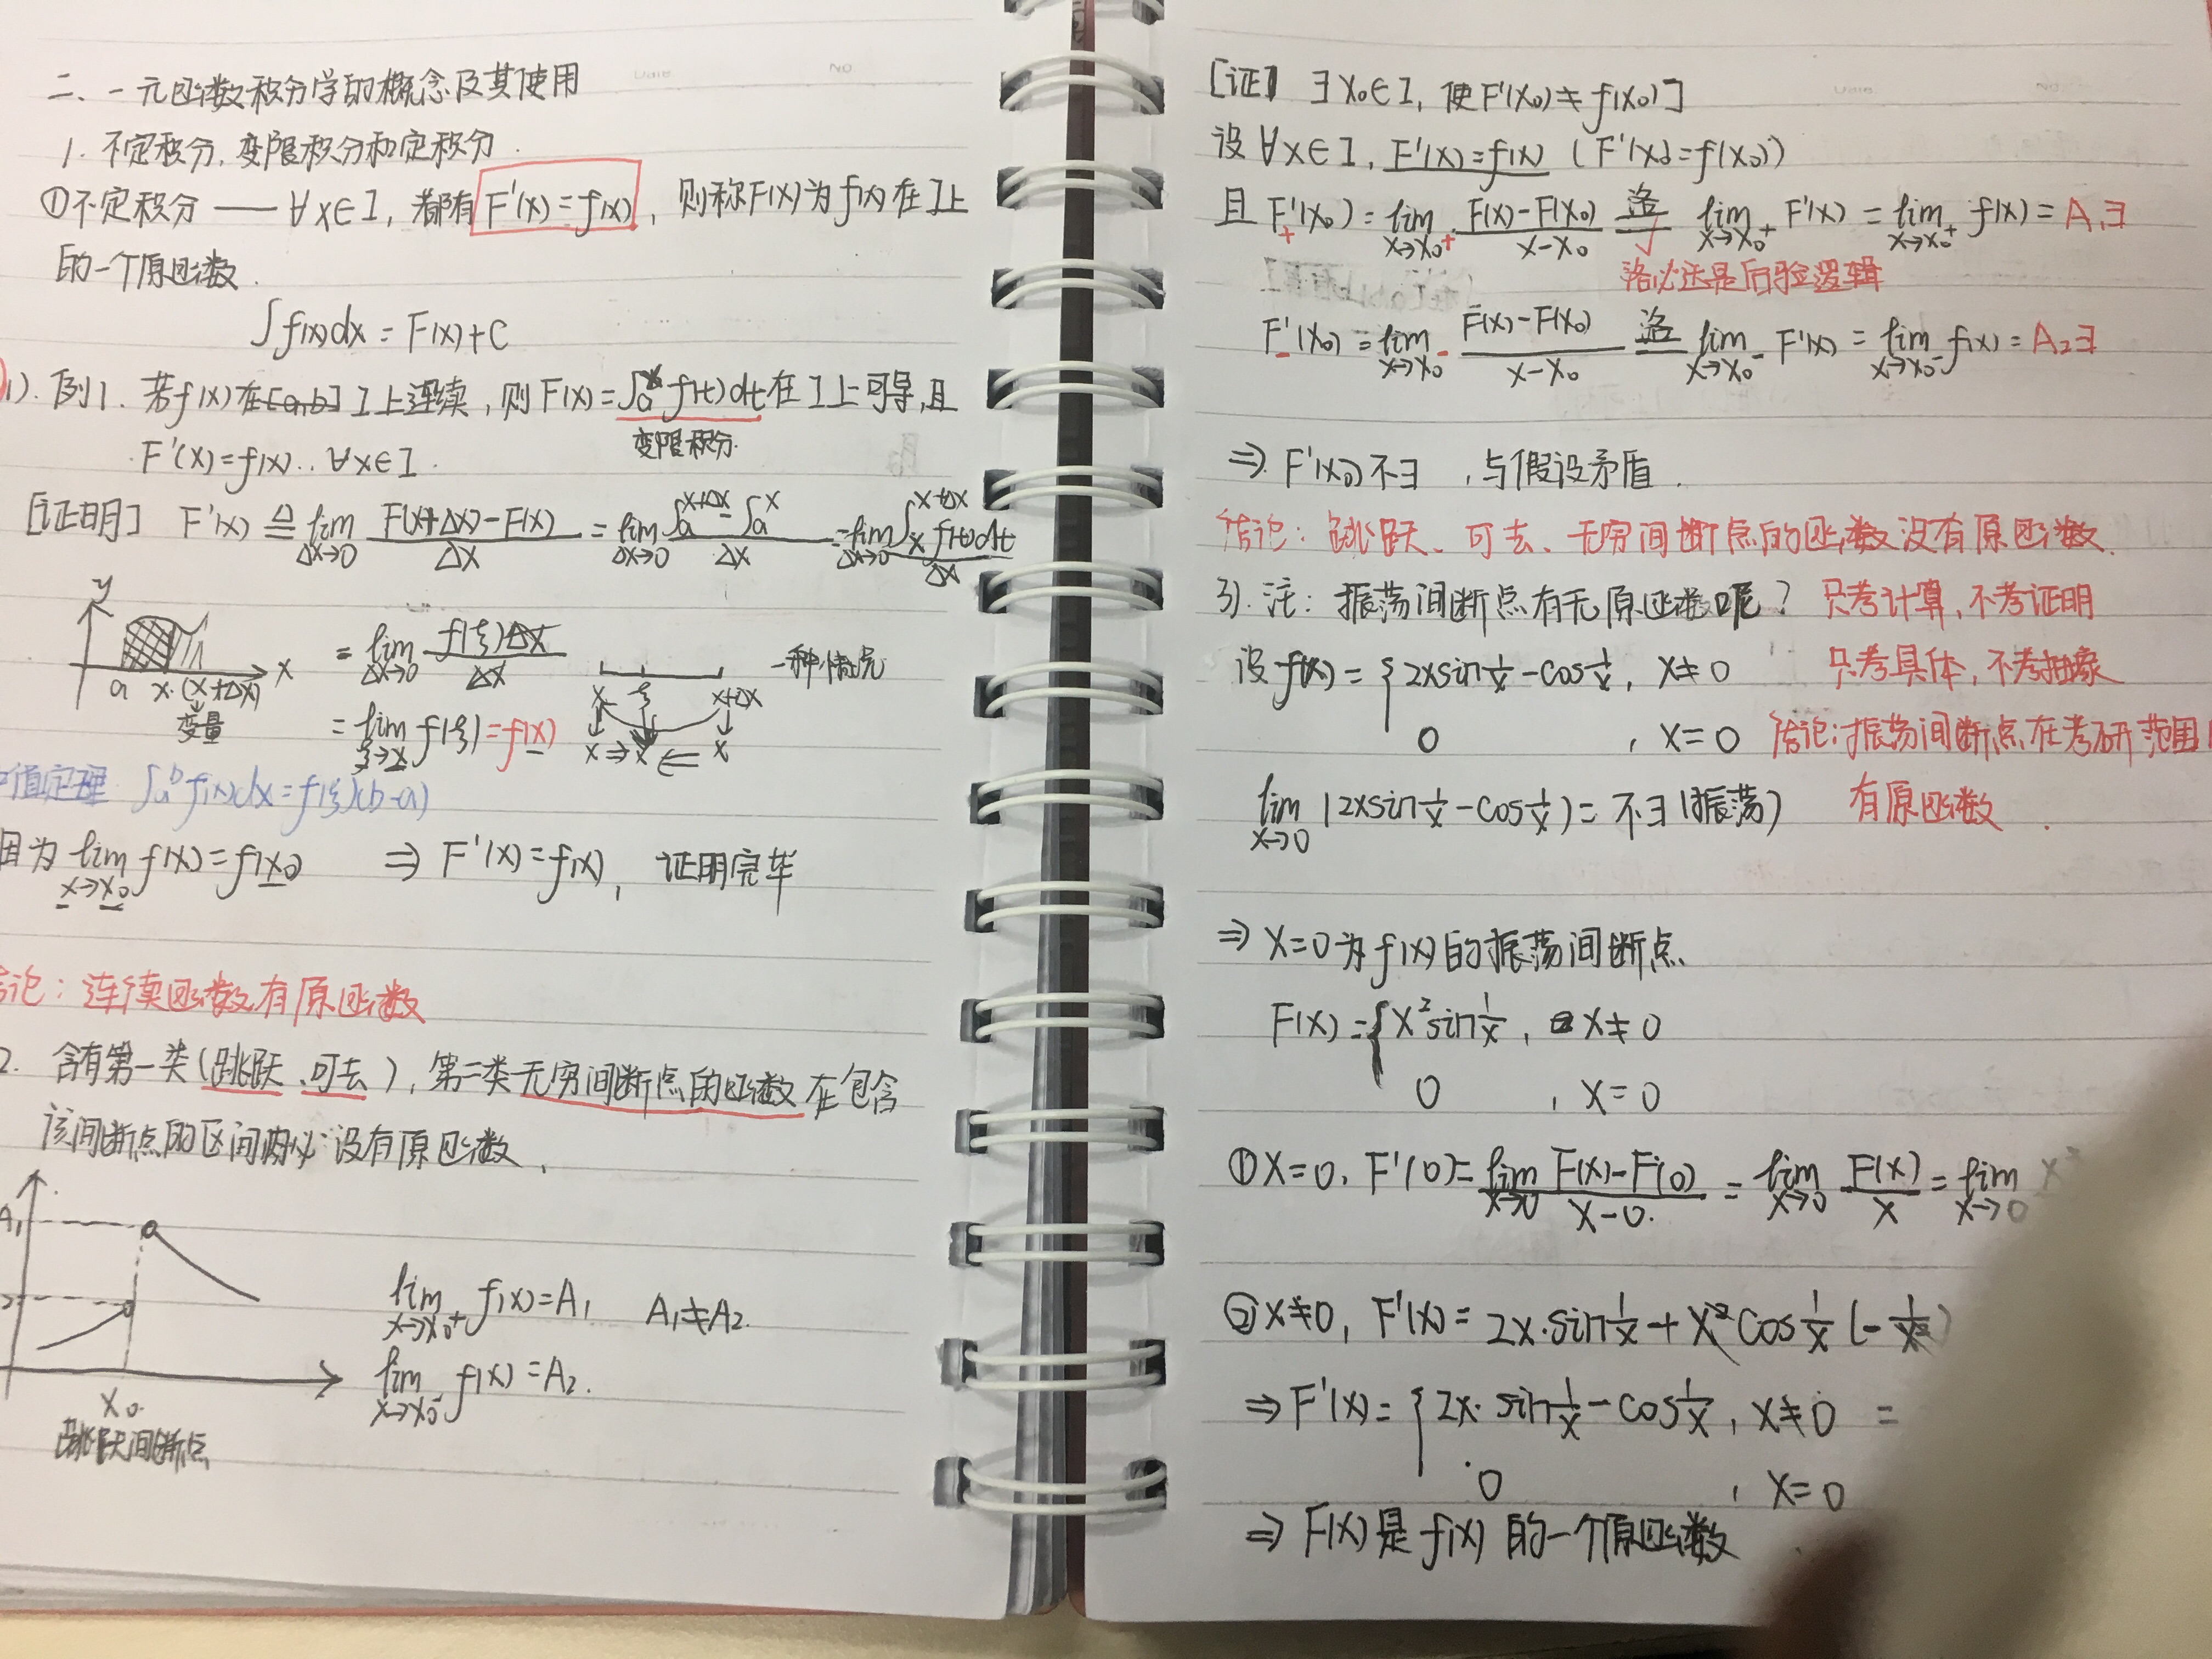 二、一元函数积分学的概念及其使用
1. 不定积分, 变限积分和定积分.
①不定积分 —— ∀x∈I, 都有 F'(x)=f(x), 则称F(x)为f(x)在I上
的一个原函数.
∫f(x)dx = F(x)+C
1). 例1. 若f(x)在[a,b] I上连续, 则F(x)=∫ₐˣ f(t)dt在I上可导,且
变限积分.
F'(x)=f(x), ∀x∈I.
[证明] F'(x) ≜ lim_{Δx→0} (F(x+Δx)-F(x))/Δx = lim_{Δx→0} (∫ₐ^{x+Δx} - ∫ₐˣ)/Δx = lim_{Δx→0} (∫ₓ^{x+Δx} f(t)dt)/Δx
y
= lim_{Δx→0} f(ξ)Δx/Δx
x ξ x+Δx 一种情况
a x (x+Δx) x
变量
= lim_{ξ→x} f(ξ)=f(x)
x ⇒ x ⇐ x
值定理 ∫ₐᵇ f(x)dx=f(ξ)(b-a)
因为 lim_{x→x₀} f(x)=f(x₀) ⇒ F'(x)=f(x), 证明完毕
论: 连续函数有原函数
2. 含有第一类(跳跃、可去), 第二类无穷间断点的函数在包含
该间断点的区间内必没有原函数.
A₁
lim_{x→x₀⁺} f(x)=A₁ A₁≠A₂.
lim_{x→x₀⁻} f(x)=A₂.
x₀.
跳跃间断点
[证] ∃x₀∈I, 使F'(x₀)≠f(x₀)]
设∀x∈I, F'(x)=f(x) (F'(x₀)=f(x₀))
且 F'₊(x₀)=lim_{x→x₀⁺} (F(x)-F(x₀))/(x-x₀) 洛= lim_{x→x₀⁺} F'(x) = lim_{x→x₀⁺} f(x) = A₁∃
洛必达是后验逻辑
F'₋(x₀)=lim_{x→x₀⁻} (F(x)-F(x₀))/(x-x₀) 洛= lim_{x→x₀⁻} F'(x) = lim_{x→x₀⁻} f(x) = A₂∃
⇒ F'(x₀)不∃, 与假设矛盾.
结论: 跳跃、可去、无穷间断点的函数没有原函数.
3). 注: 振荡间断点有无原函数呢? 只考计算,不考证明
设f(x)= { 2xsin1/x - cos1/x, x≠0 只考具体,不考抽象
0, x=0 结论:振荡间断点在考研范围
lim_{x→0} (2xsin1/x - cos1/x) = 不∃(振荡) 有原函数.
⇒ x=0为f(x)的振荡间断点
F(x)= { x²sin1/x, x≠0
0, x=0
①x=0, F'(0)=lim_{x→0} (F(x)-F(0))/(x-0) = lim_{x→0} F(x)/x = lim_{x→0}
②x≠0, F'(x)= 2x·sin1/x + x²cos1/x (-1/x²)
⇒ F'(x)= { 2x·sin1/x - cos1/x, x≠0 =
0, x=0
⇒ F(x)是f(x)的一个原函数